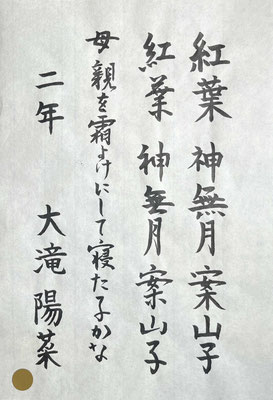 紅葉 神無月 案山子
紅葉 神無月 案山子
母親を霜よけにして寝た子かな
二年 大滝陽菜